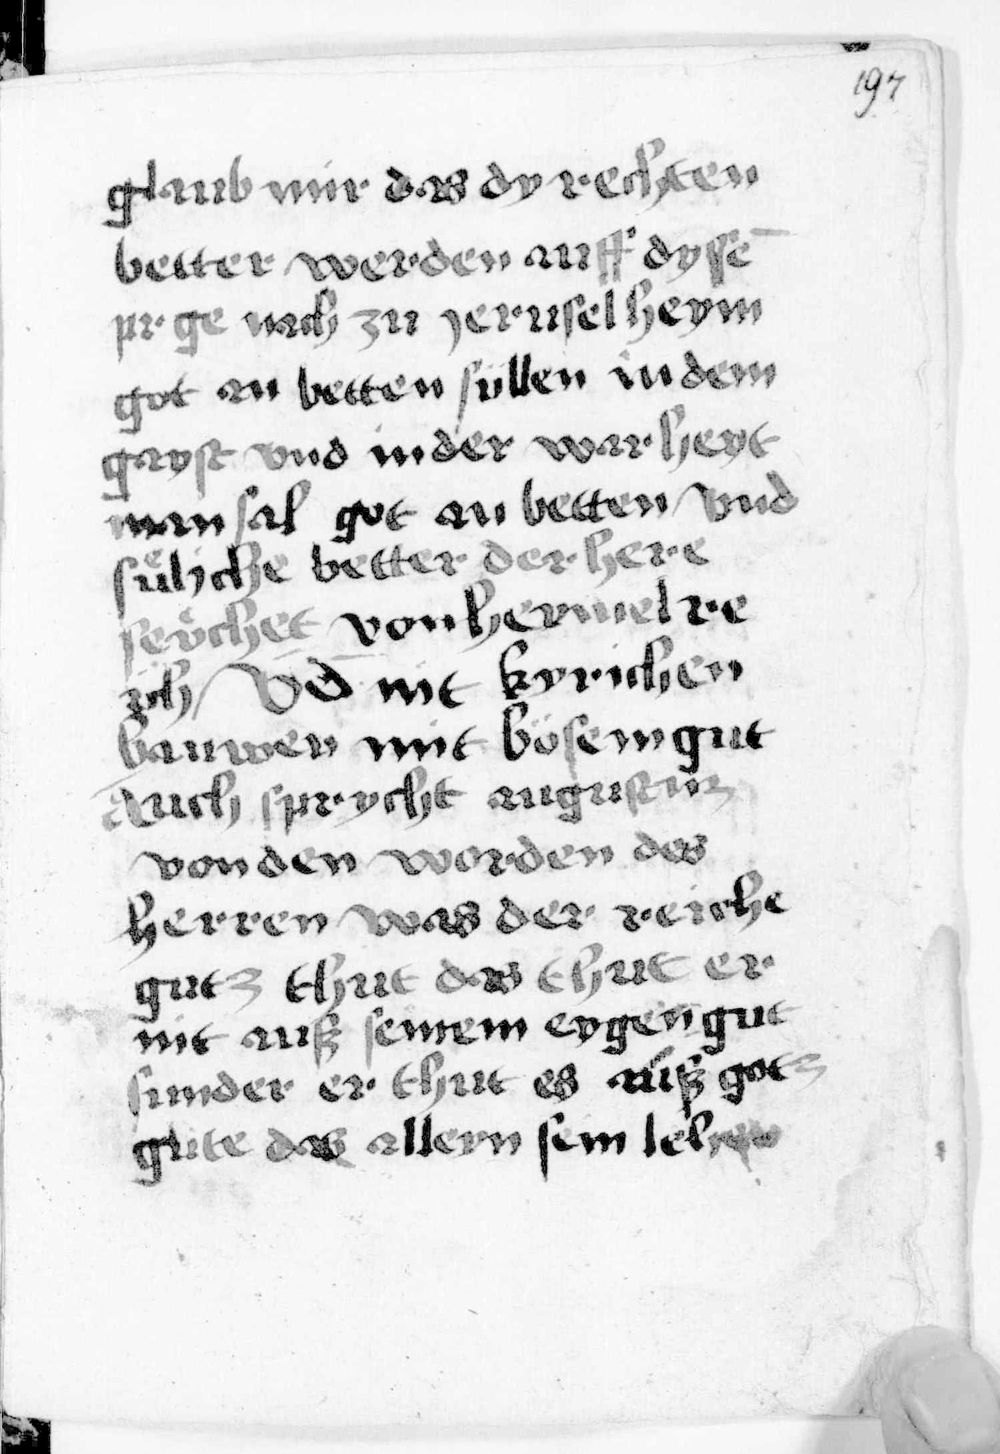 197
glaub mir das dy rechten
better werden auff dyssē
pr ge nach zu jeruselheym
got an betten süllen in dem
gayst vnd in der warheyt
man sal got an betten / vnd
sůliche better der here
seuͦchet von heymelre
ich / Vd̄ nit kyrichen
bauwen mit bösem gut
Auch sprycht augustinꝫ
von den worden des
herren was der reiche
gutz thut das thut er
nit auß seinem eygen gut
sunder er thut es auß gotz
gute das alleyn sein